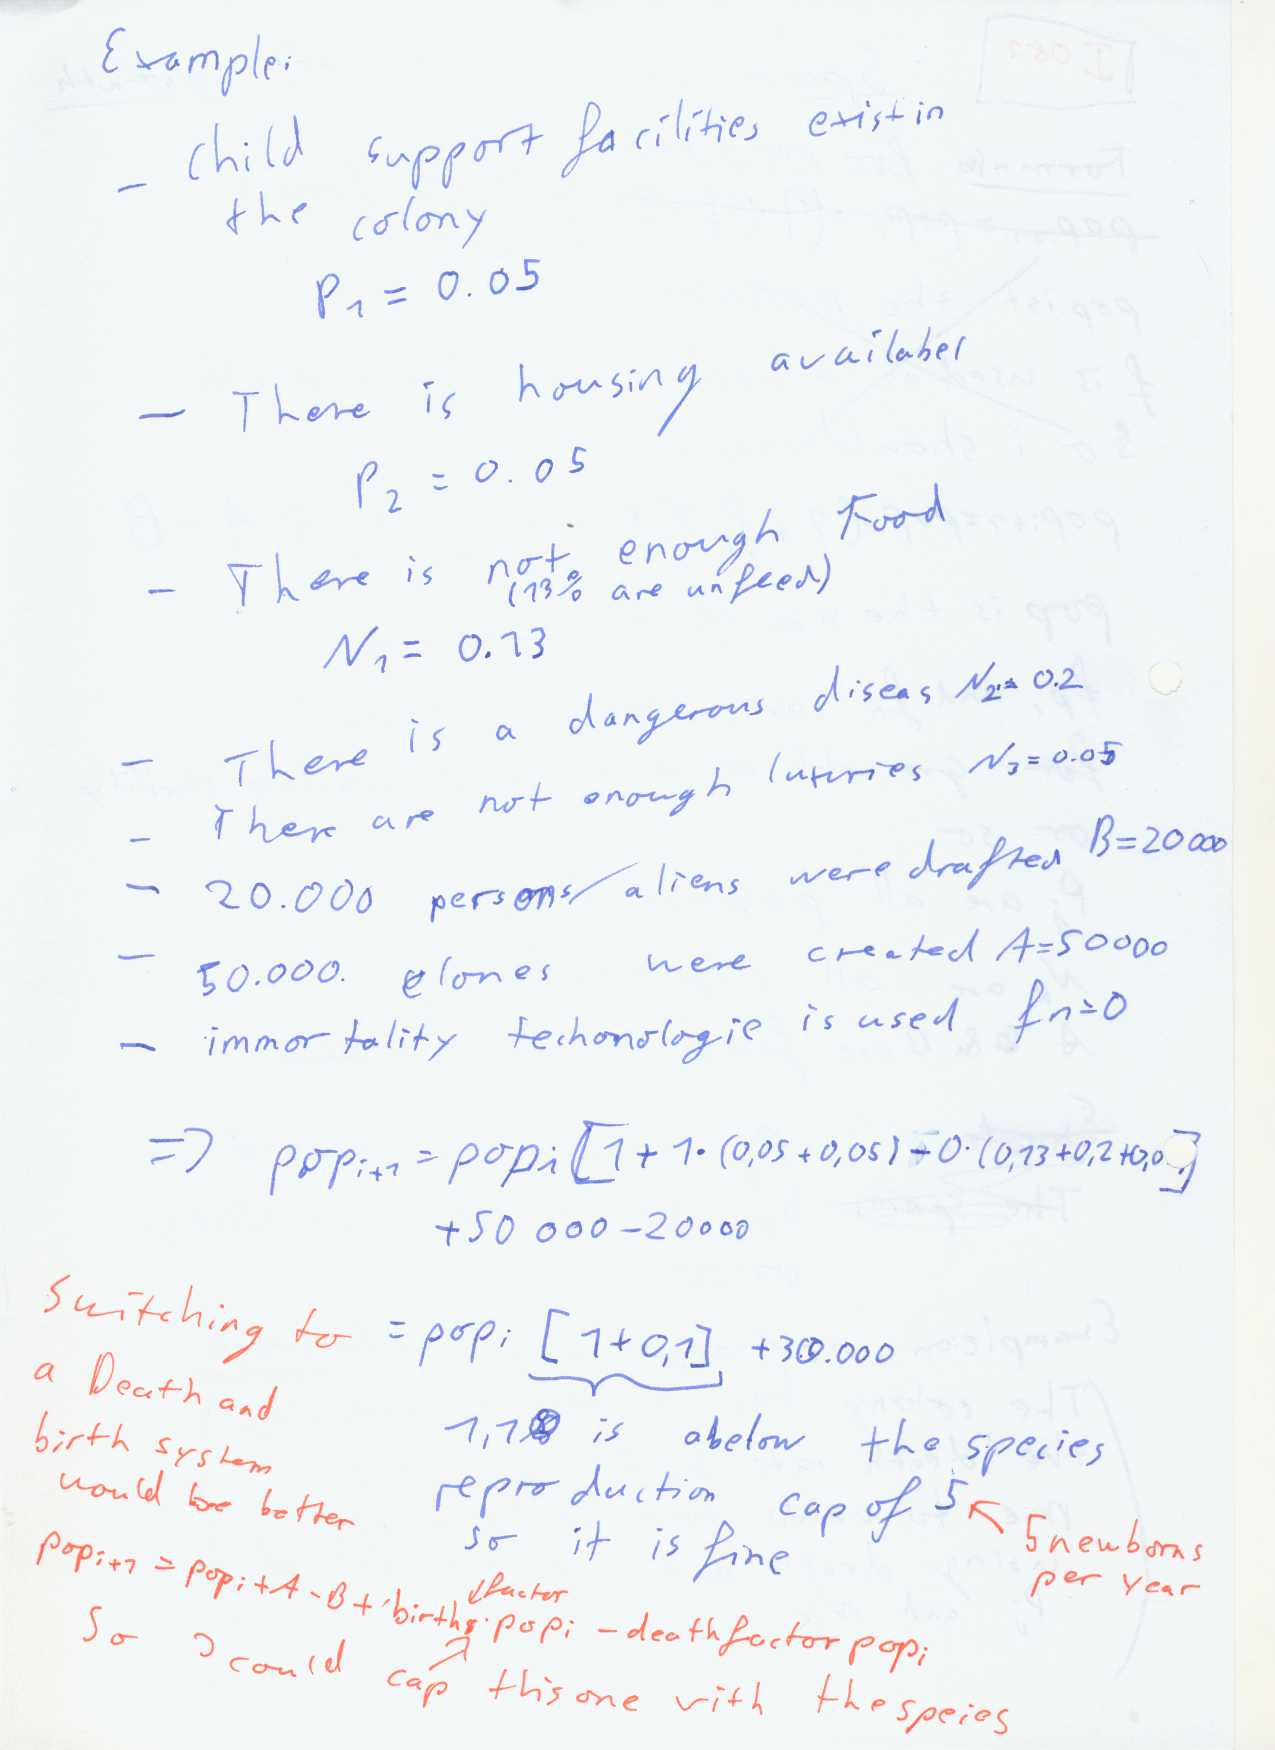 Example:
- Child support facilities exist in
the colony
P1 = 0.05
- There is housing availabel
P2 = 0.05
- There is not enough Food
(13% are unfeed)
N1 = 0.13
- There is a dangerous diseas N2 = 0.2
- There are not enough luturies N3 = 0.05
- 20.000 persons/aliens were drafted B=20000
- 50.000. clones were created A=50000
- immortality techonologie is used fn=0
=> popi+1 = popi [1 + 1·(0,05 + 0,05) - 0·(0,13+0,2+0,0 ]
+50 000 - 20000
= popi [1+0,1] +30.000
1,1 is abelow the species
reproduction cap of 5
so it is fine
Switching to
a Death and
birth system
would be better
5 newborns
per year
popi+1 = popi + A - B + birth factor · popi - deathfactor popi
So I could cap this one vith the speies